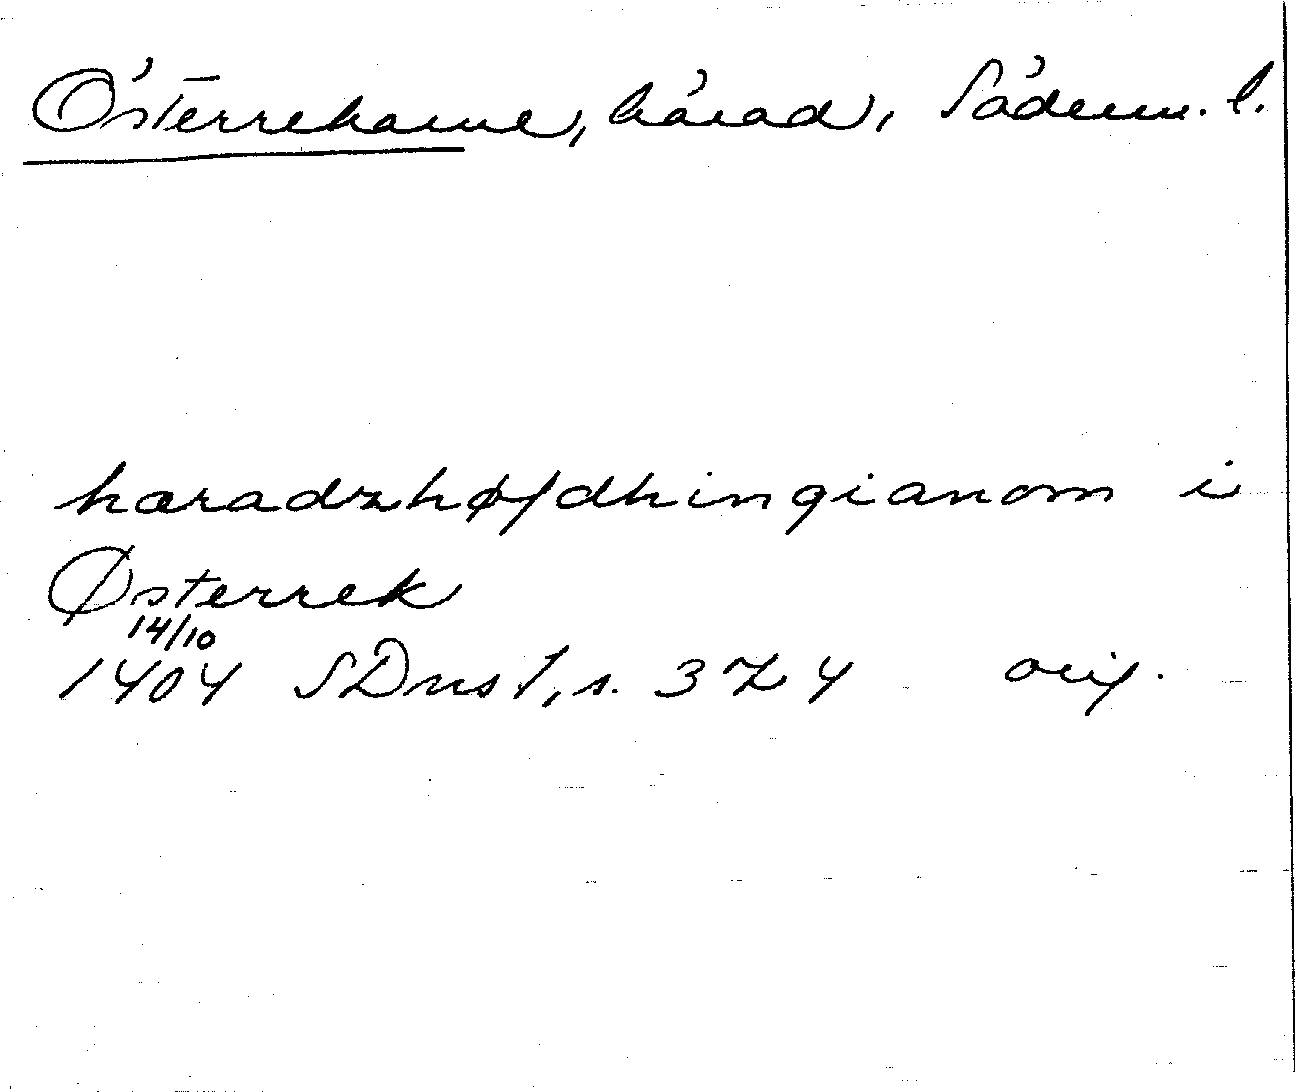 Österrekarne, härad, Söderm. l.
hæradzhøfdhingianom i
Østerrek
14/10
1404 SDns 1, s. 324 orig.